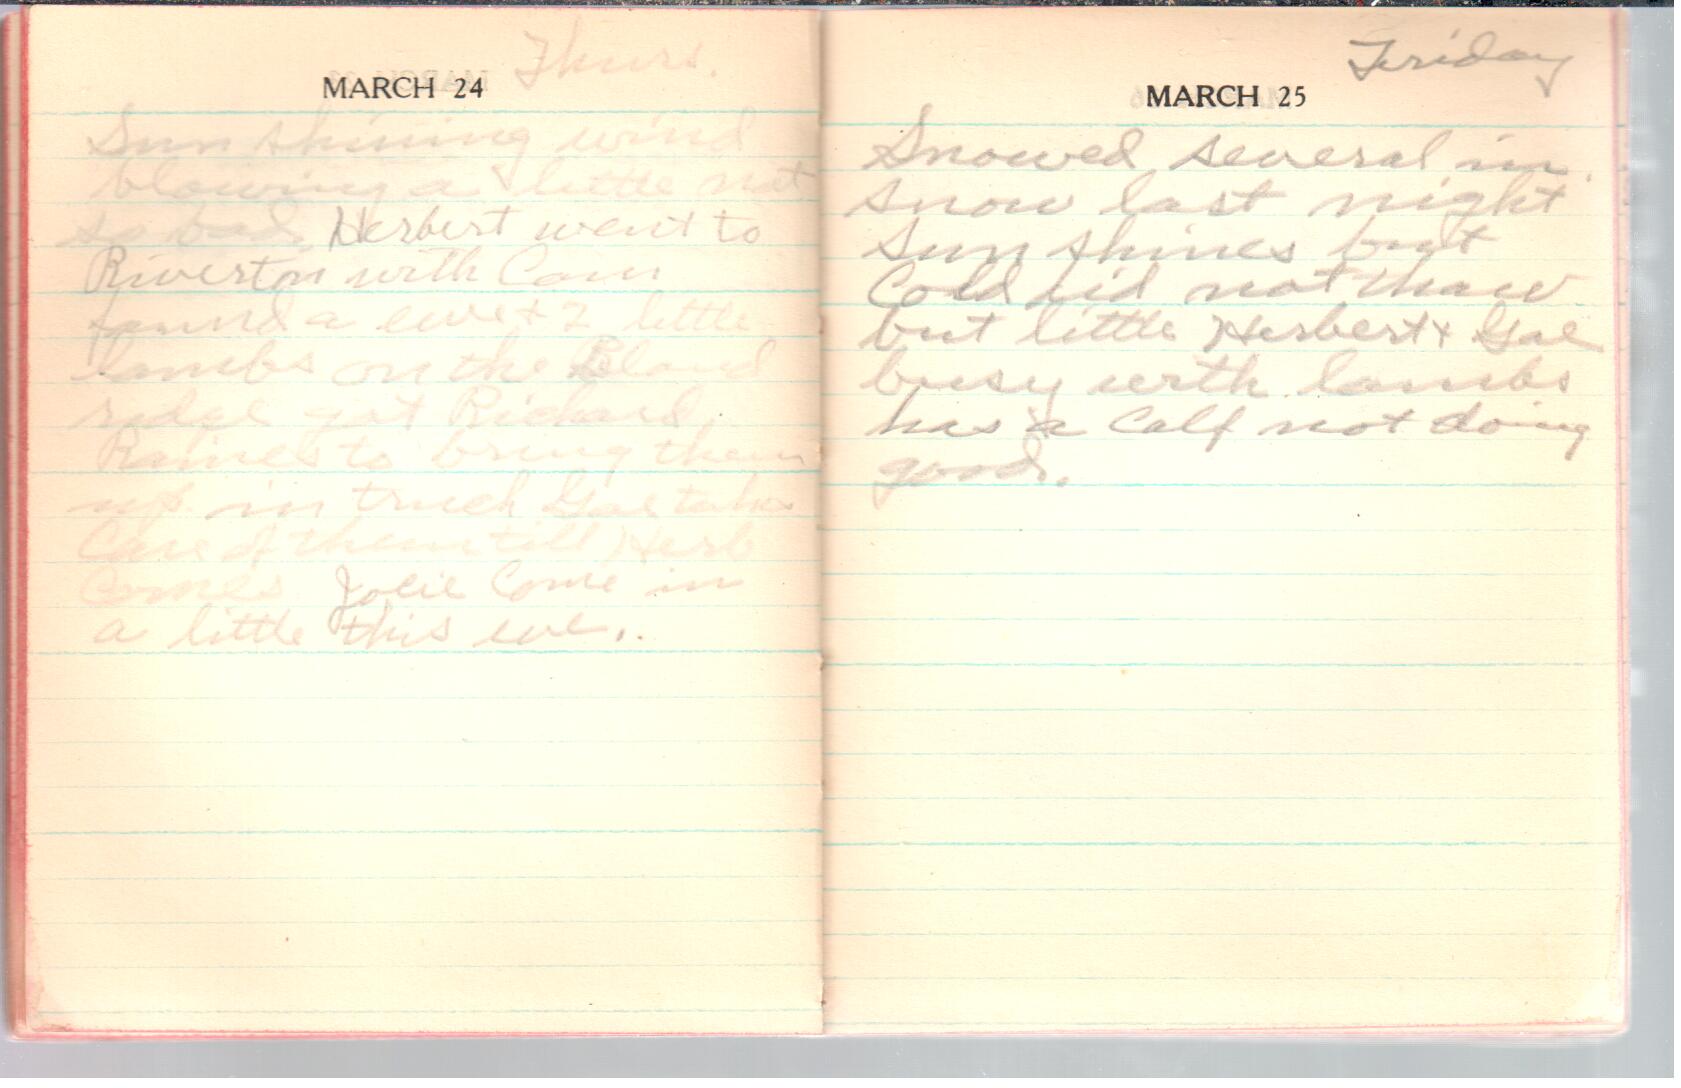 Thurs.
MARCH 24
Sun shining wind
blowing a little not
so bad Herbert went to
Riverton with Cain
found a ewe + 2 little
lambs on the Bland
ridge got Richard
Raines to bring them
up in truck Gae take
Care of them till Herb
Comes Jocie Come in
a little this eve..
Friday
MARCH 25
Snowed several in.
snow last night
Sun shines but
Cold did not thaw
but little Herbert + Gae
busy with lambs
has a Calf not doing
good.